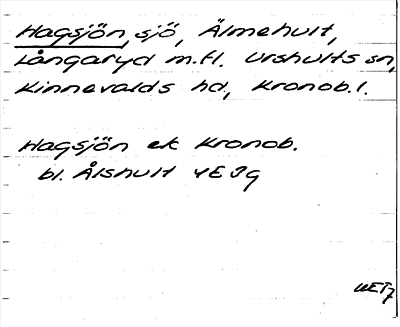 Hagsjön, sjö, Älmehult,
Långaryd m.fl. Urshults sn,
Kinnevalds hd, Kronob.l.
Hagsjön ek Kronob.
bl. Ålshult 4E 3g